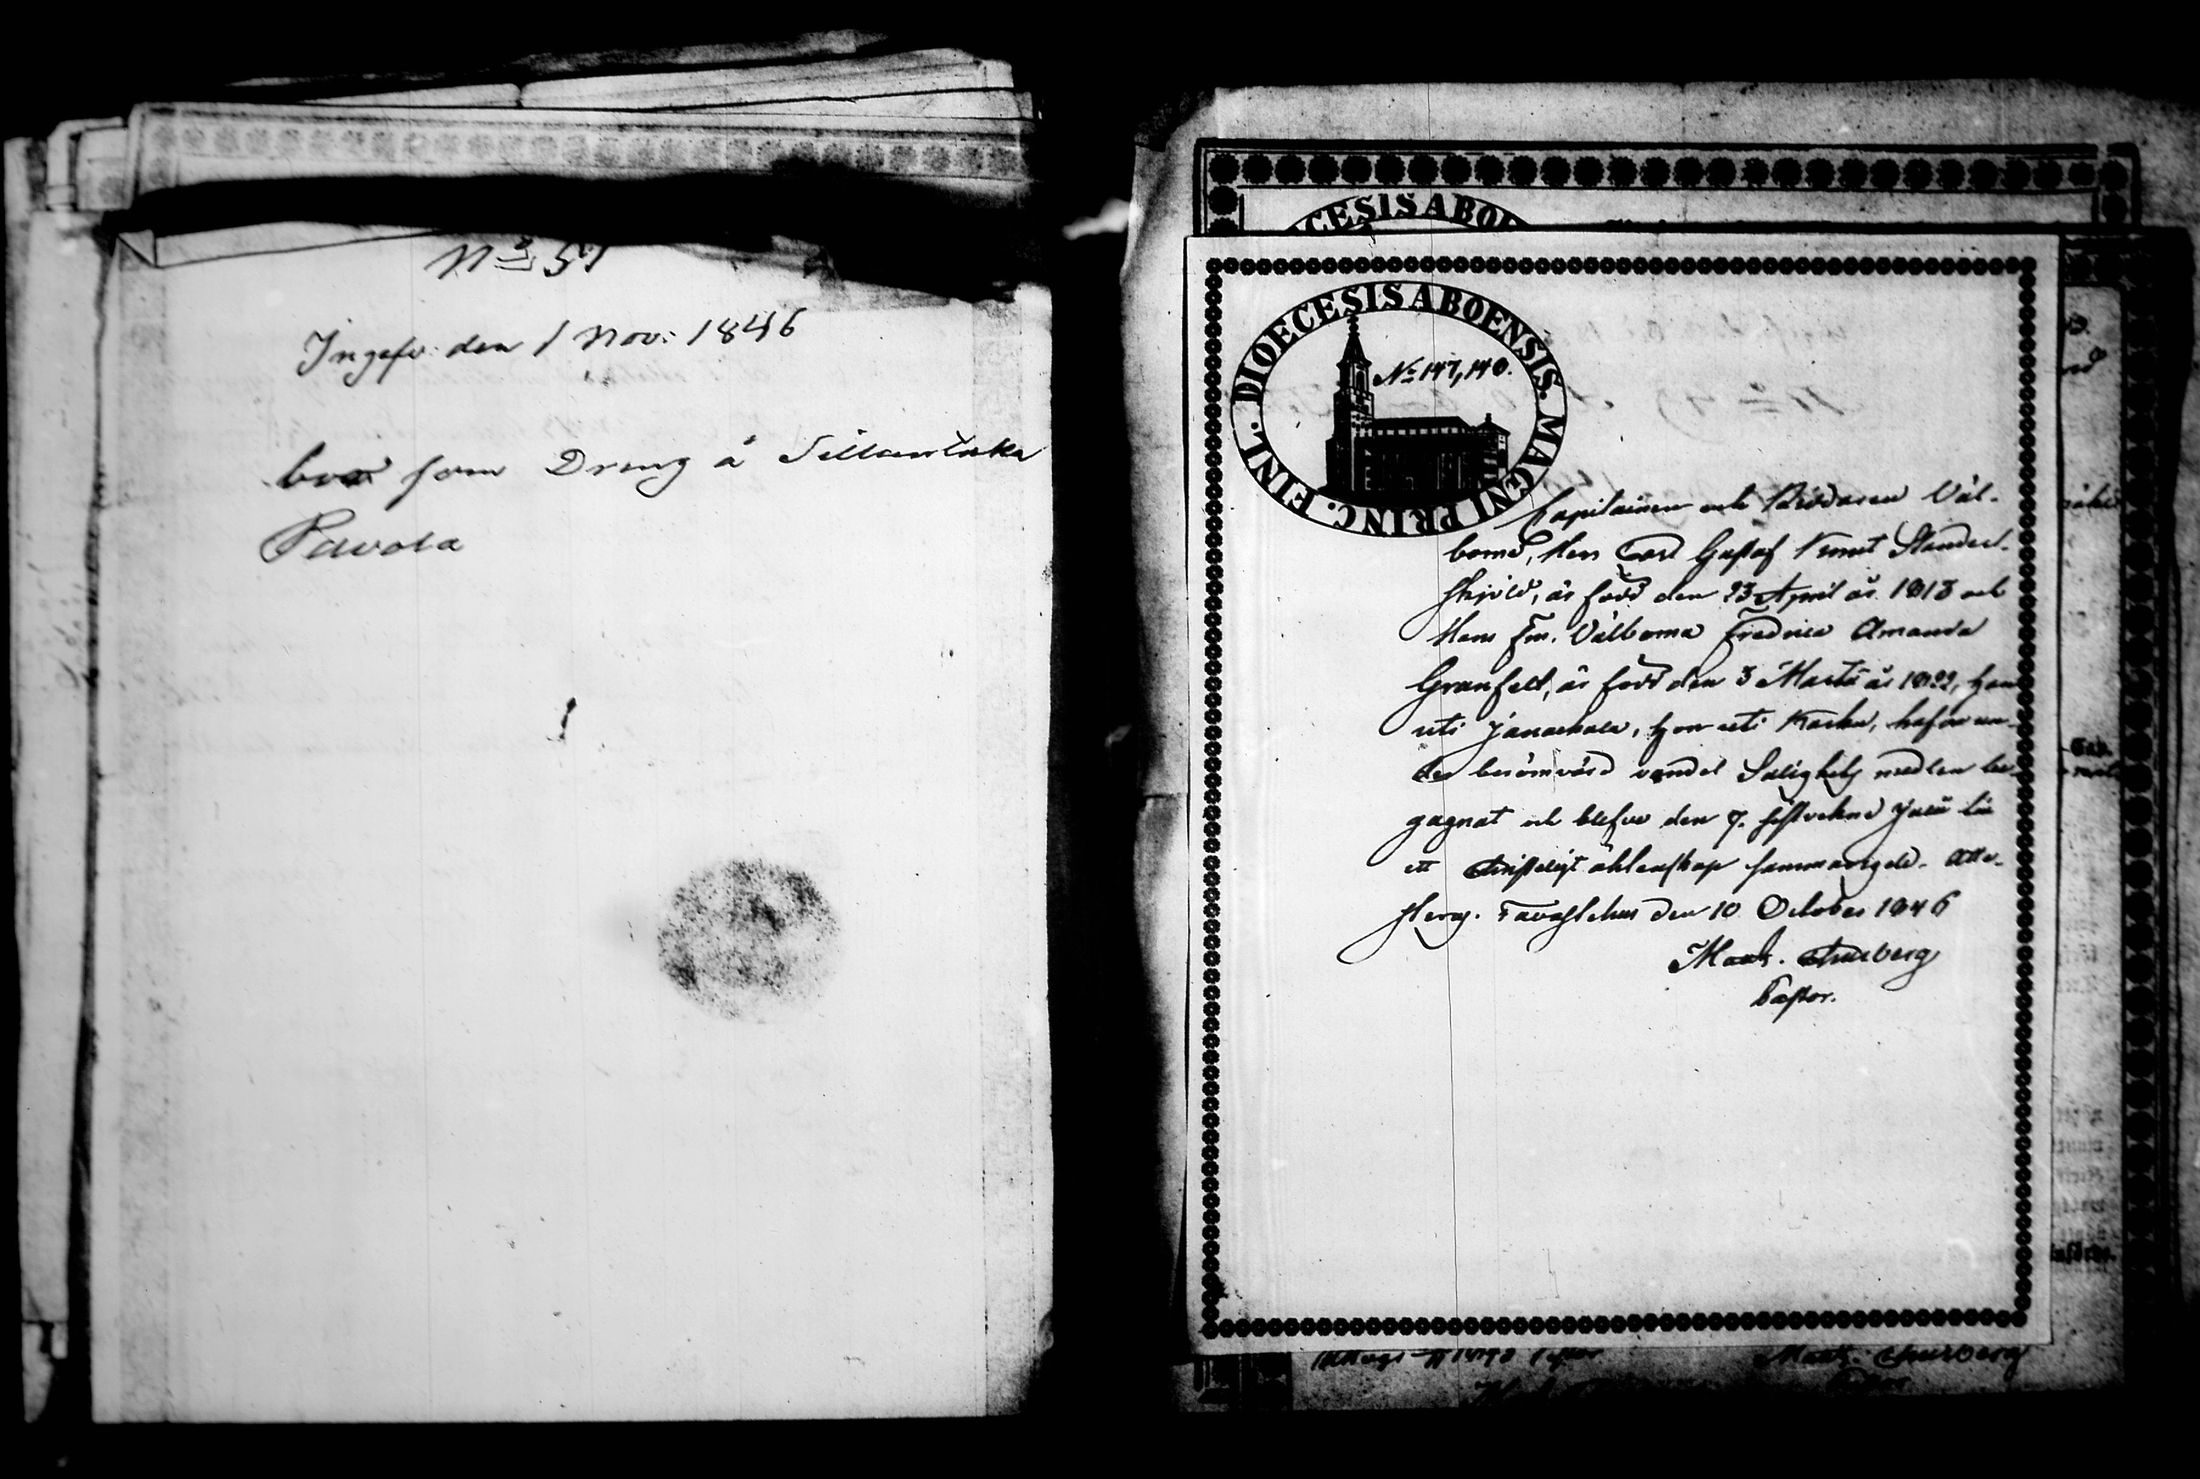 No 57
Ingefv: den 1 Nov: 1846
bor som Dreng å
Pavola
CESIS ABOE
DIOECESIS ABOENSIS. MAGNI PRINC. FINL.
No 147, 148.
Capitainen och Riddaren Väl-
borne, Herr Carl Gustaf Ernst Standert-
skjöld, är född den 23 April år 1813 och
Hans Fru, Välborna Fredrica Amanda
Granfelt, är född den 3 Martii år 1822, han
uti Janackala, hon uti Karku, hafva un-
der berömvärd vandel Salighets medlen be-
gagnat och blefvo den 7. sistvekne Julii til
ett Christeligt äktenskap sammanvigde. Atte-
steras. Tavastehus den 10 October 1846
Math. Churberg
Pastor.
Math. Churberg